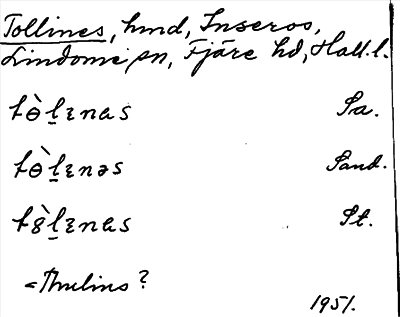 Tollines, hmd, Inseros,
Lindome sn, Fjäre hd, Hall. l.
tɵ̀l̠ɪnas Sa.
tɵ̀l̠ɪnəs Sand.
t8̀l̠ɪnas St.
< Thulins?
1951.